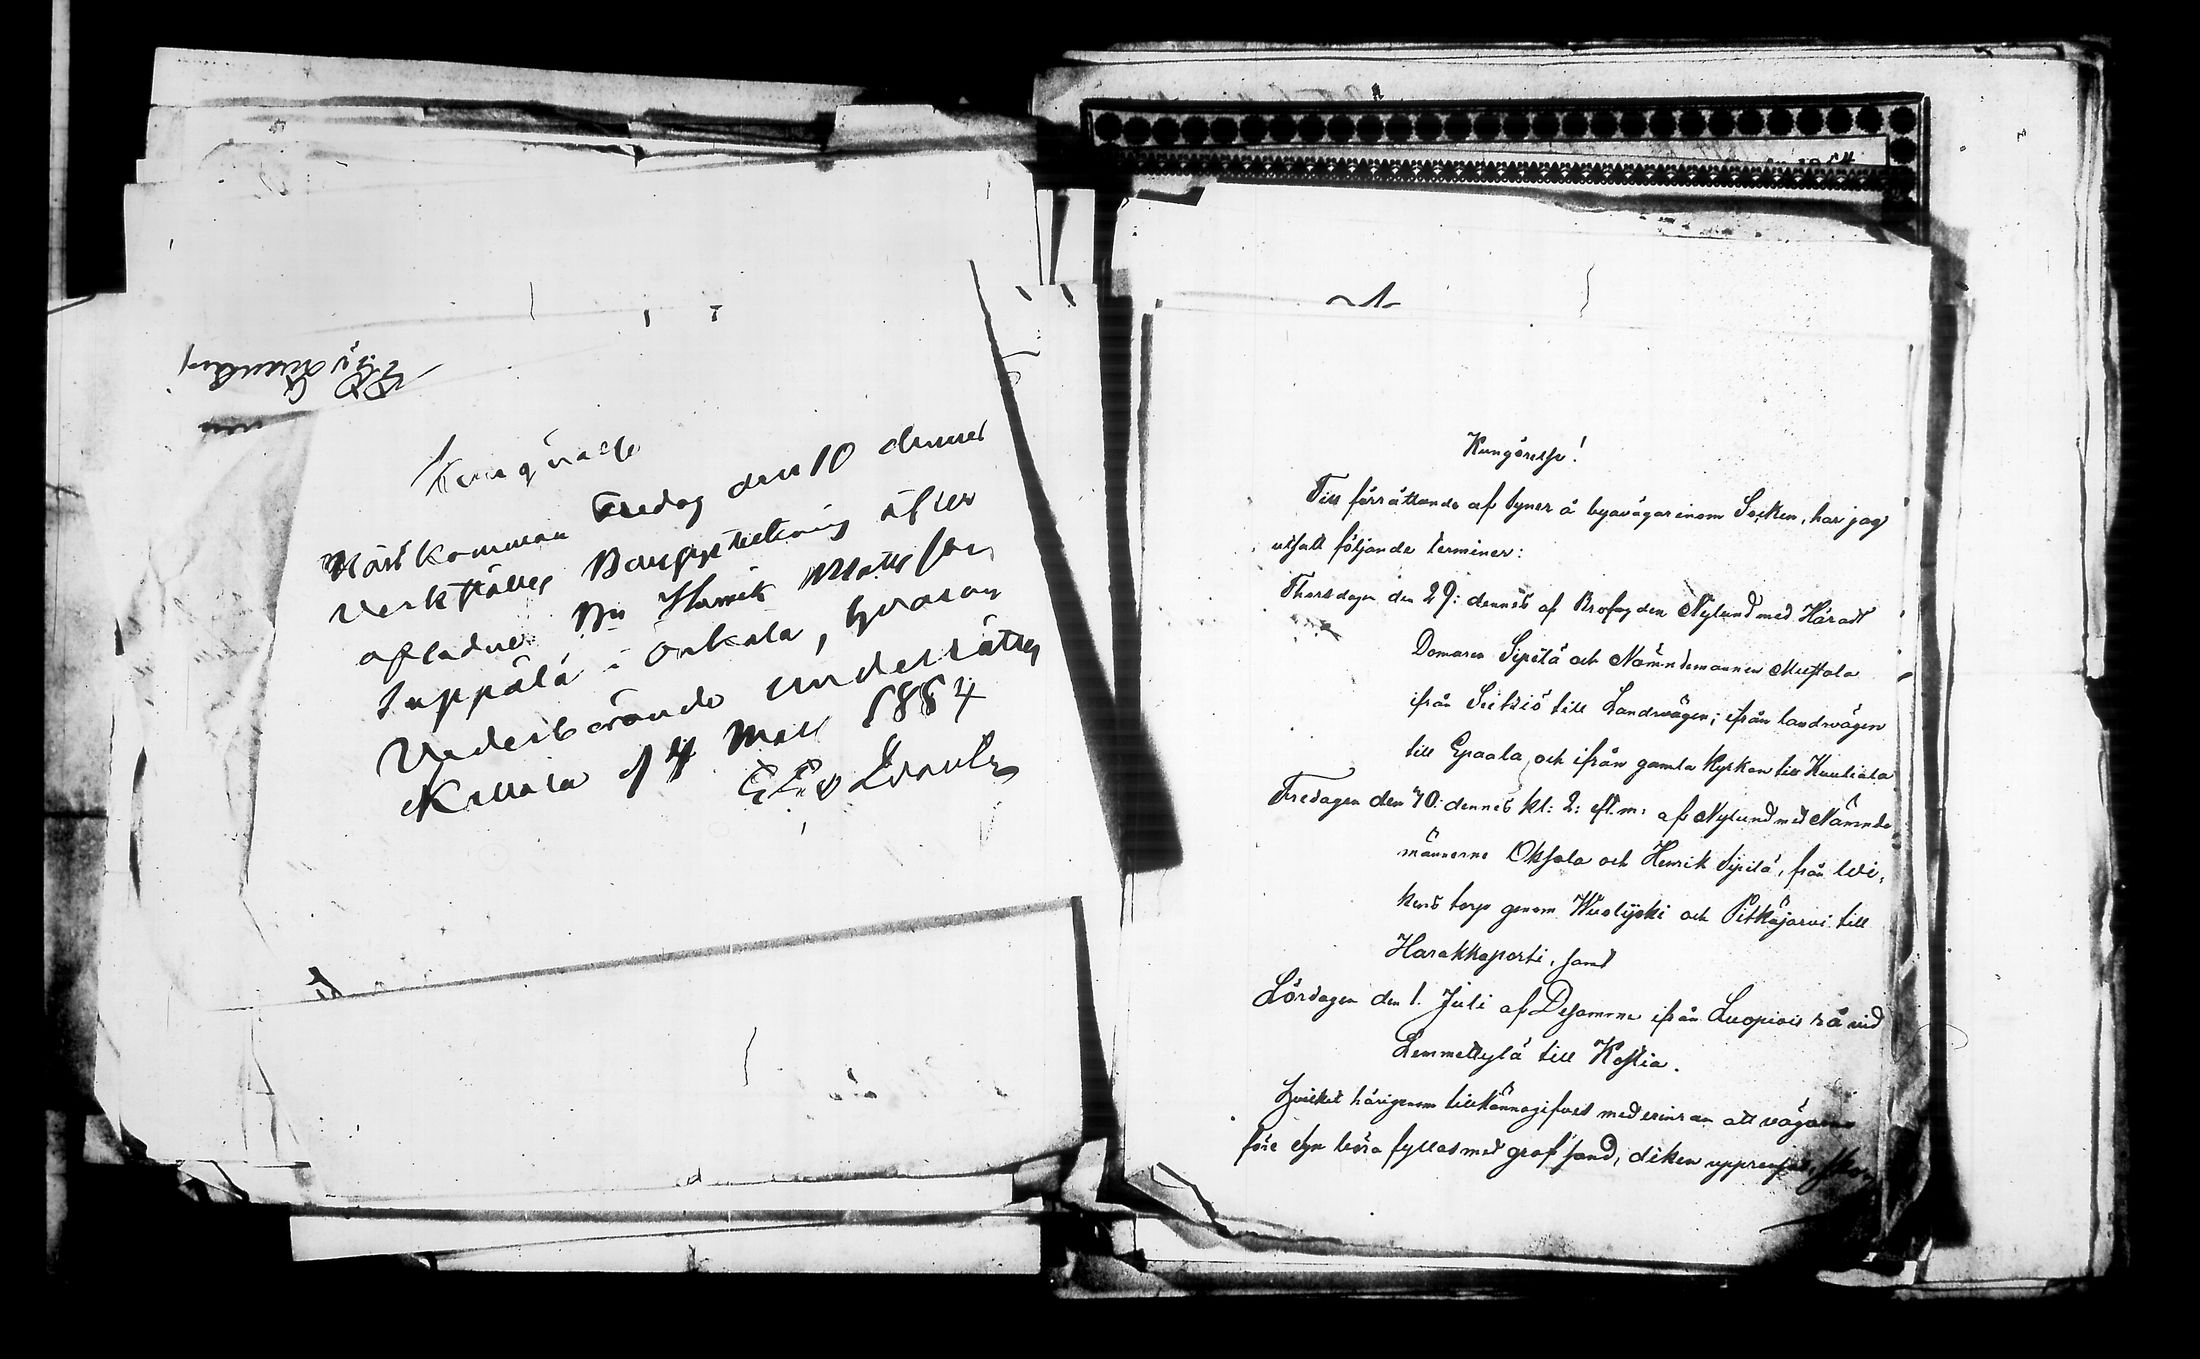 Kungörelse
Näst kommen Fredag den 10 dennes
verkställes Bouppteckning äfter
afledne Bn Henrik Mattsson
Suppälä i Onkala, hvarom
Vederbörande underrättas
Kallala d 4 Maij 1884
Kungörelse!
Till förrättande af syner å byavägar inom Socken, har jag
utsatt följande terminer:
Thorsdagen den 29: dennes af Brofogden Nylund med Härads
Domaren Sipilä och Nämndemannen Mustala
ifrån Seitsiö till Landsvägen; ifrån landsvägen
till Epaala, och ifrån gamla Kyrkan till Kuuliala
Fredagen den 30: dennes kl: 2: eft.m: af Nylund med Nämnde
männerne Oksala och Henrik Sipilä, från Wii-
kens torp genom Wuolijoki och Pitkäjärvi till
Harakkaporti, samt
Lördagen den 1. Juli af Desamme ifrån Luopiois rå vid
Lemmettylä till Kostia.
Hvilket härigenom tillkännagifves med erinran att vägarne
före syn böra fyllas med graf sand, diken upprensas,